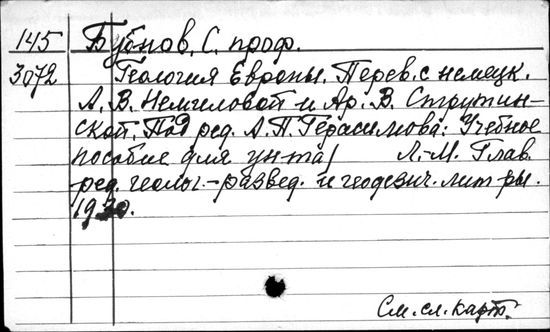 145 Бубнов, С. проф.
3072 Геология Европы. Перев. с немецк.
А. В. Немиловой и Ар. В. Струтин-
ской. Под ред. А. П. Герасимова: Учебное
пособие для ун-та/ Л.-М. Глав.
ред. геолог.-развед. и геодезич. лит-ры.
См. сл. карт.